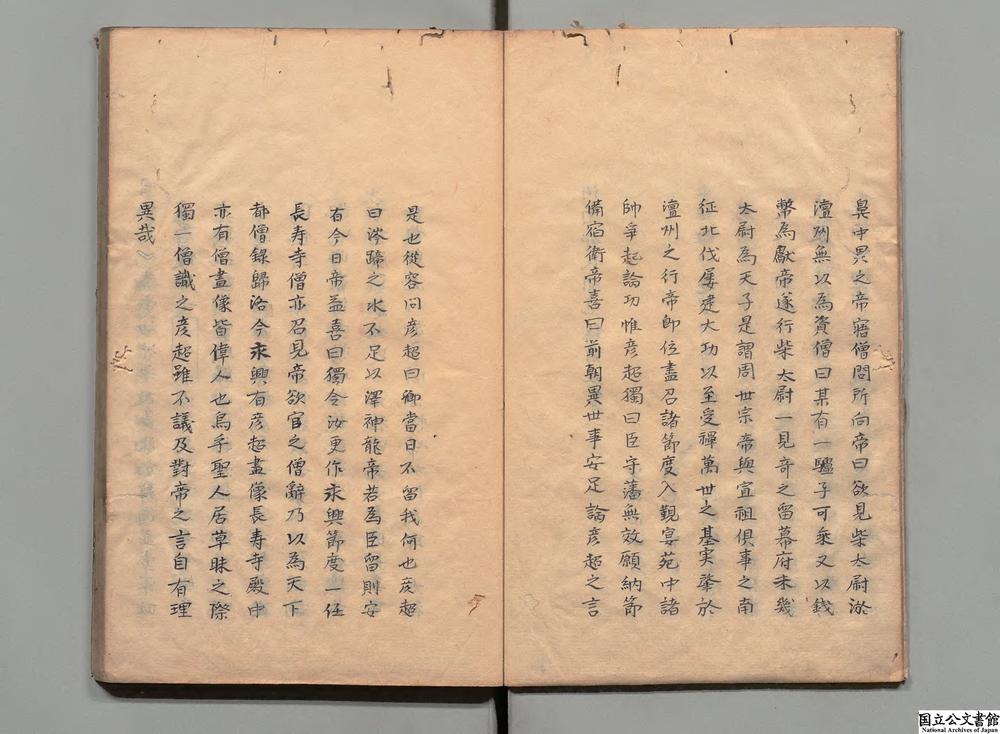 臭中異之帝寤僧問所向帝曰欲見柴太尉於
澶州無以為資僧曰某有一驢子可乗又以錢
幣為獻帝遂行柴太尉一見奇之留幕府未幾
太尉為天子是謂周世宗帝與宣祖俱事之南
征北伐屢建大功以至受禪萬世之基実肇於
澶州之行帝即位盡召諸節度入覲宴苑中諸
帥爭起論功惟彦超獨曰臣守藩無效願納節
備宿衛帝喜曰前朝異世事安足論彦超之言
是也從容问彦超曰卿當日不留我何也彦超
曰涔蹄之水不足以澤神龍帝若為臣留則安
有今日帝益喜曰獨令汝更作永興節度一任
長寿寺僧亦召見帝欲官之僧辭乃以為天下
都僧録歸洛今永興有彦超畫像長寿寺殿中
亦有僧畫像皆偉人也烏乎聖人居草昧之際
獨一僧識之彦超雖不議及對帝之言自有理
異哉
国立公文書館
National Archives of Japan